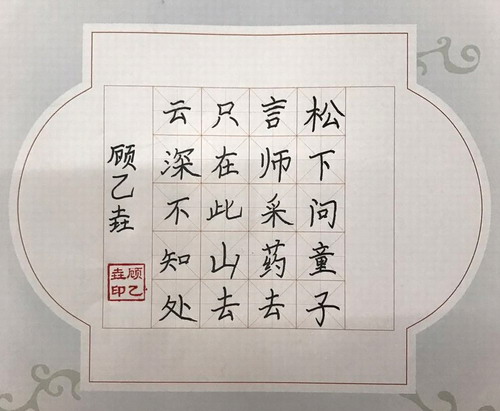 松下问童子
言师采药去
只在此山去
云深不知处
顾乙垚
顾乙垚印